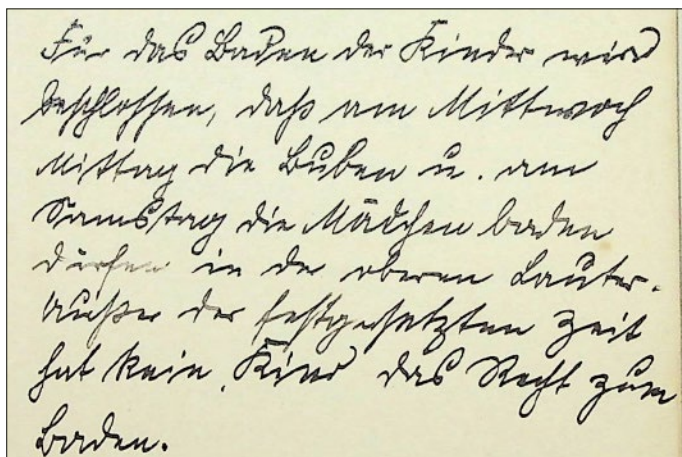 Für das Baden der Kinder wird
beschlossen, daß am Mittwoch
Mittag die Buben u. am
Samstag die Mädchen baden
dürfen in der oberen Lauter.
Außer der festgesetzten Zeit
hat kein Kind das Recht zum
Baden.